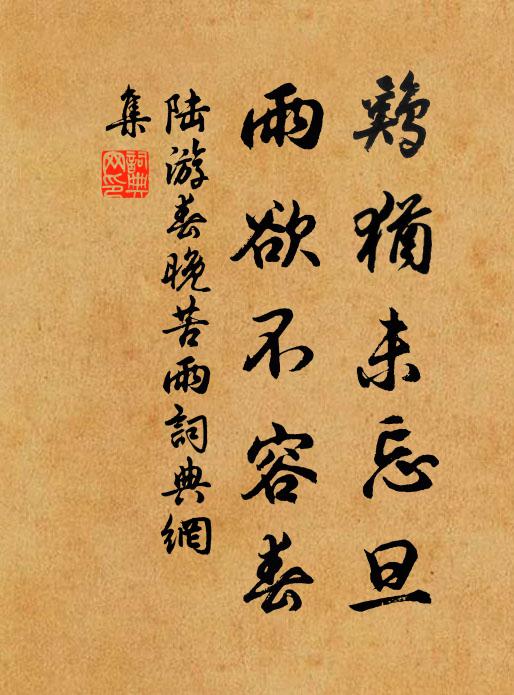 鷄猶未忘旦
雨欲不容春
陸游春晚苦雨詞典網
集
詞典
网印